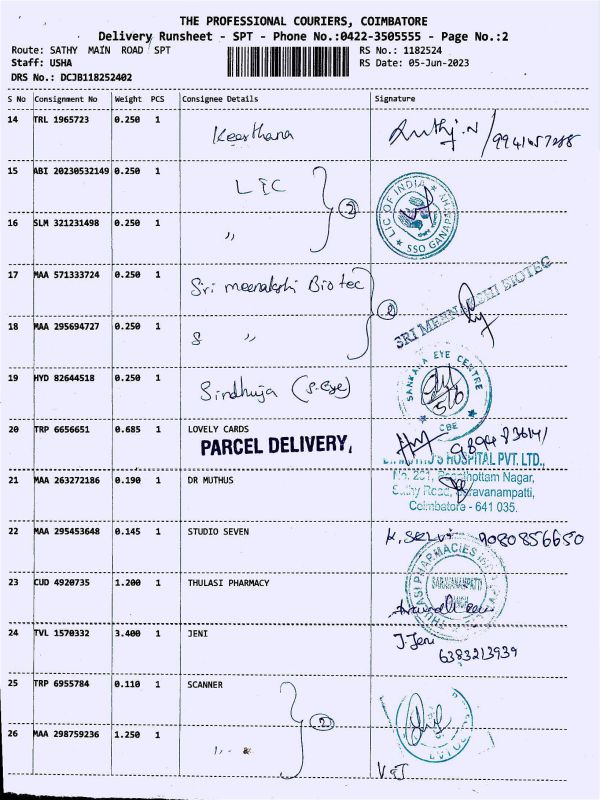 THE PROFESSIONAL COURIERS, COIMBATORE
Delivery Runsheet - SPT - Phone No.:0422-3505555 - Page No.:2
Route: SATHY MAIN ROAD SPT
RS No.: 1182524
Staff: USHA
RS Date: 05-Jun-2023
DRS No.: DCJB118252402
S No Consignment No Weight PCS Consignee Details Signature
14 TRL 1965723 0.250 1 Keerthana
15 ABI 20230532149 0.250 1 LIC
LIC OF INDIA
SSO GANAPA
2
16 SLM 321231498 0.250 1 "
17 MAA 571333724 0.250 1 Sri meenakshi Biotec
SRI MEENAKSHI BIOTEC
2
18 MAA 295694727 0.250 1 S "
19 HYD 82644518 0.250 1 Sindhuja (S-Eye)
SANKARA EYE CENTRE
CBE
20 TRP 6656651 0.685 1 LOVELY CARDS
PARCEL DELIVERY,
HOSPITAL PVT. LTD.,
21 MAA 263272186 0.190 1 DR MUTHUS
Nagar,
Sathy Road, Saravanampatti,
Coimbatore - 641 035.
22 MAA 295453648 0.145 1 STUDIO SEVEN K. SELVI 9080856650
23 CUD 4920735 1.200 1 THULASI PHARMACY
THULASI PHARMACIES
SARAVANAMPATTI
24 TVL 1570332 3.400 1 JENI J. Jeni
6383213939
25 TRP 6955784 0.110 1 SCANNER
2
26 MAA 298759236 1.250 1 "